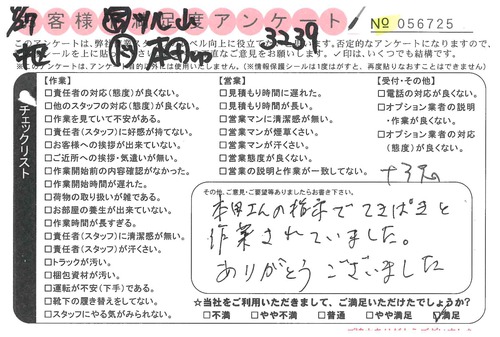 お客様満足度アンケート
№ 056725
11/27
3239
チェックリスト
【作業】
□責任者の対応(態度)が良くない。
□他のスタッフの対応(態度)が良くない。
□作業を見ていて不安がある。
□責任者(スタッフ)に好感が持てない。
□お客様への挨拶が出来ていない。
□ご近所への挨拶・気遣いが無い。
□作業開始前の内容確認がなかった。
□作業開始時間が遅れた。
□荷物の取り扱いが雑である。
□お部屋の養生が出来ていない。
□作業時間が長すぎる。
□責任者(スタッフ)に清潔感が無い。
□責任者(スタッフ)が汗くさい。
□トラックが汚い。
□梱包資材が汚い。
□運転が不安(下手)である。
□靴下の履き替えをしてない。
□スタッフにやる気がみられない。
【営業】
□見積もり時間に遅れた。
□見積もり時間が長い。
□営業マンに清潔感が無い。
□営業マンが煙草くさい。
□営業マンが汗くさい。
□営業態度が良くない。
□営業の説明と作業が一致してない。
【受付・その他】
□電話の対応が良くない。
□オプション業者の説明
・作業が良くない。
□オプション業者の対応
(態度)が良くない。
その他、ご意見・ご要望等ありましたらお書き下さい。
本田さんの指示でてきぱきと
作業されていました。
ありがとうございました
☆当社をご利用いただきまして、ご満足いただけたでしょうか?
□不満 □やや不満 □普通 □やや満足 □満足